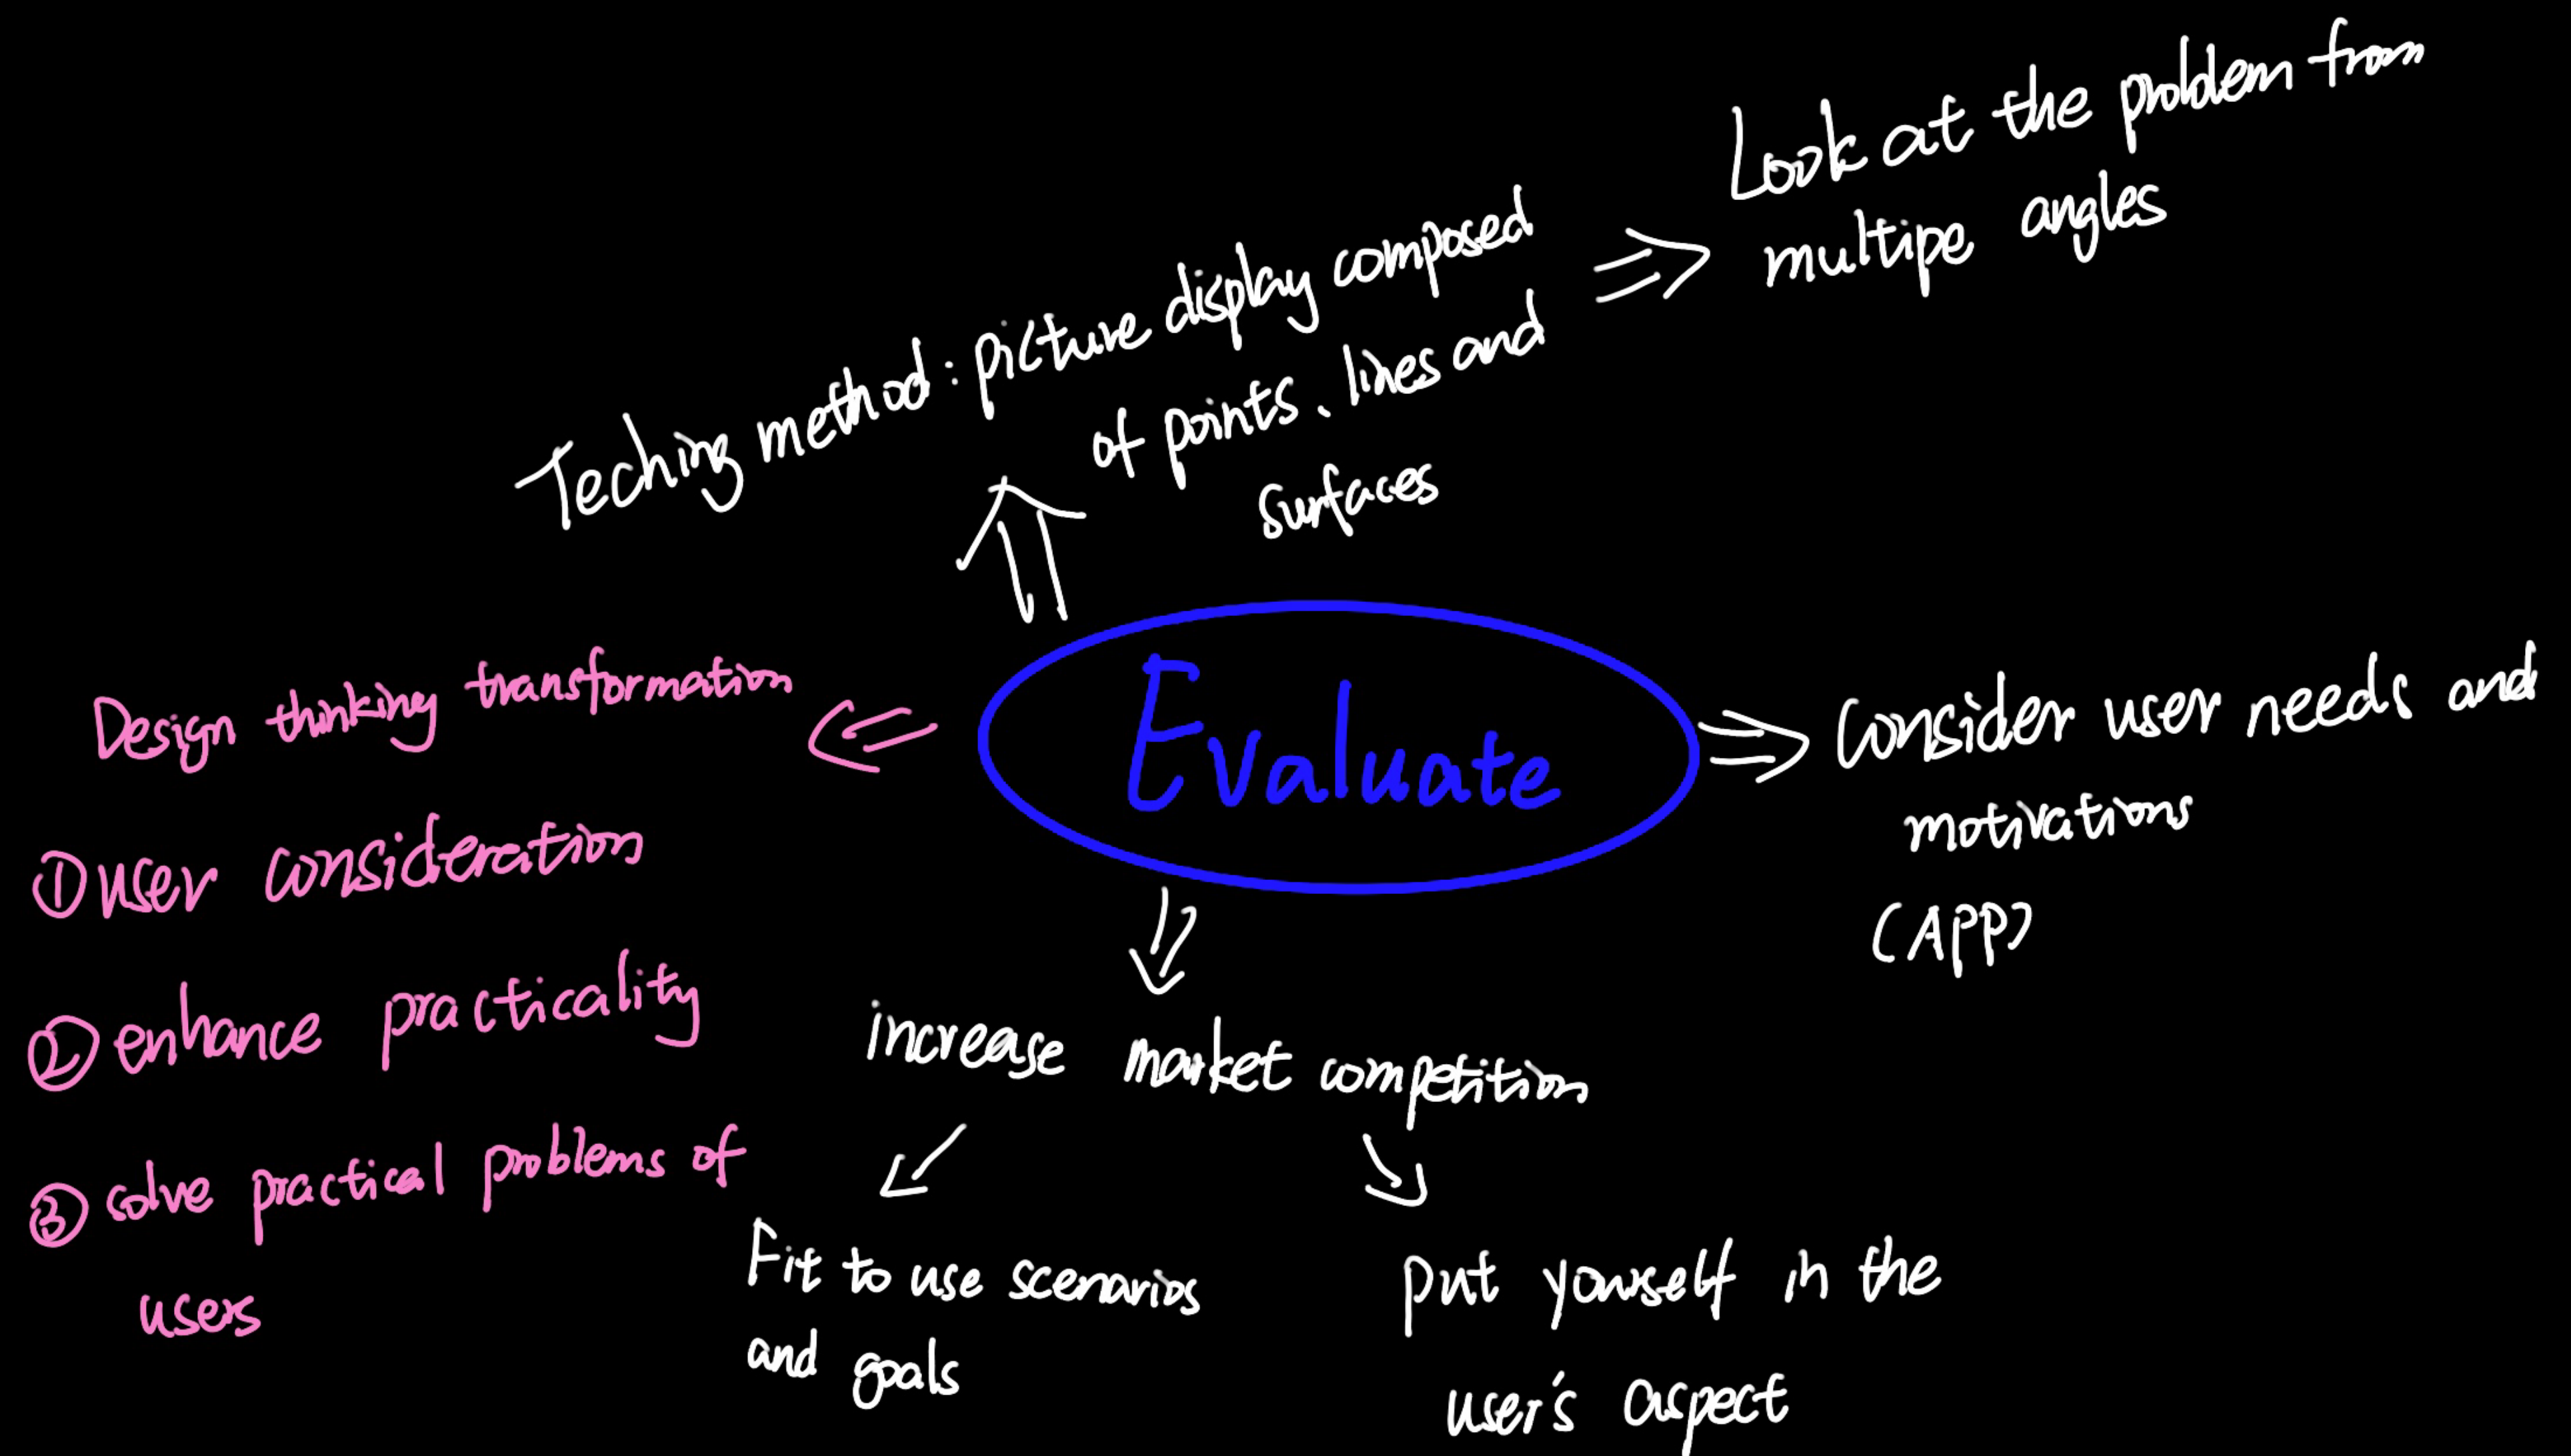 Look at the problem from
multipe angles
Teching method: picture display composed
of points、lines and
surfaces
Evaluate
Design thinking transformation
① user consideration
② enhance practicality
③ solve practical problems of
users
Consider user needs and
motivations
(APP)
increase market competition
Fit to use scenarios
and goals
put yourself in the
user's aspect